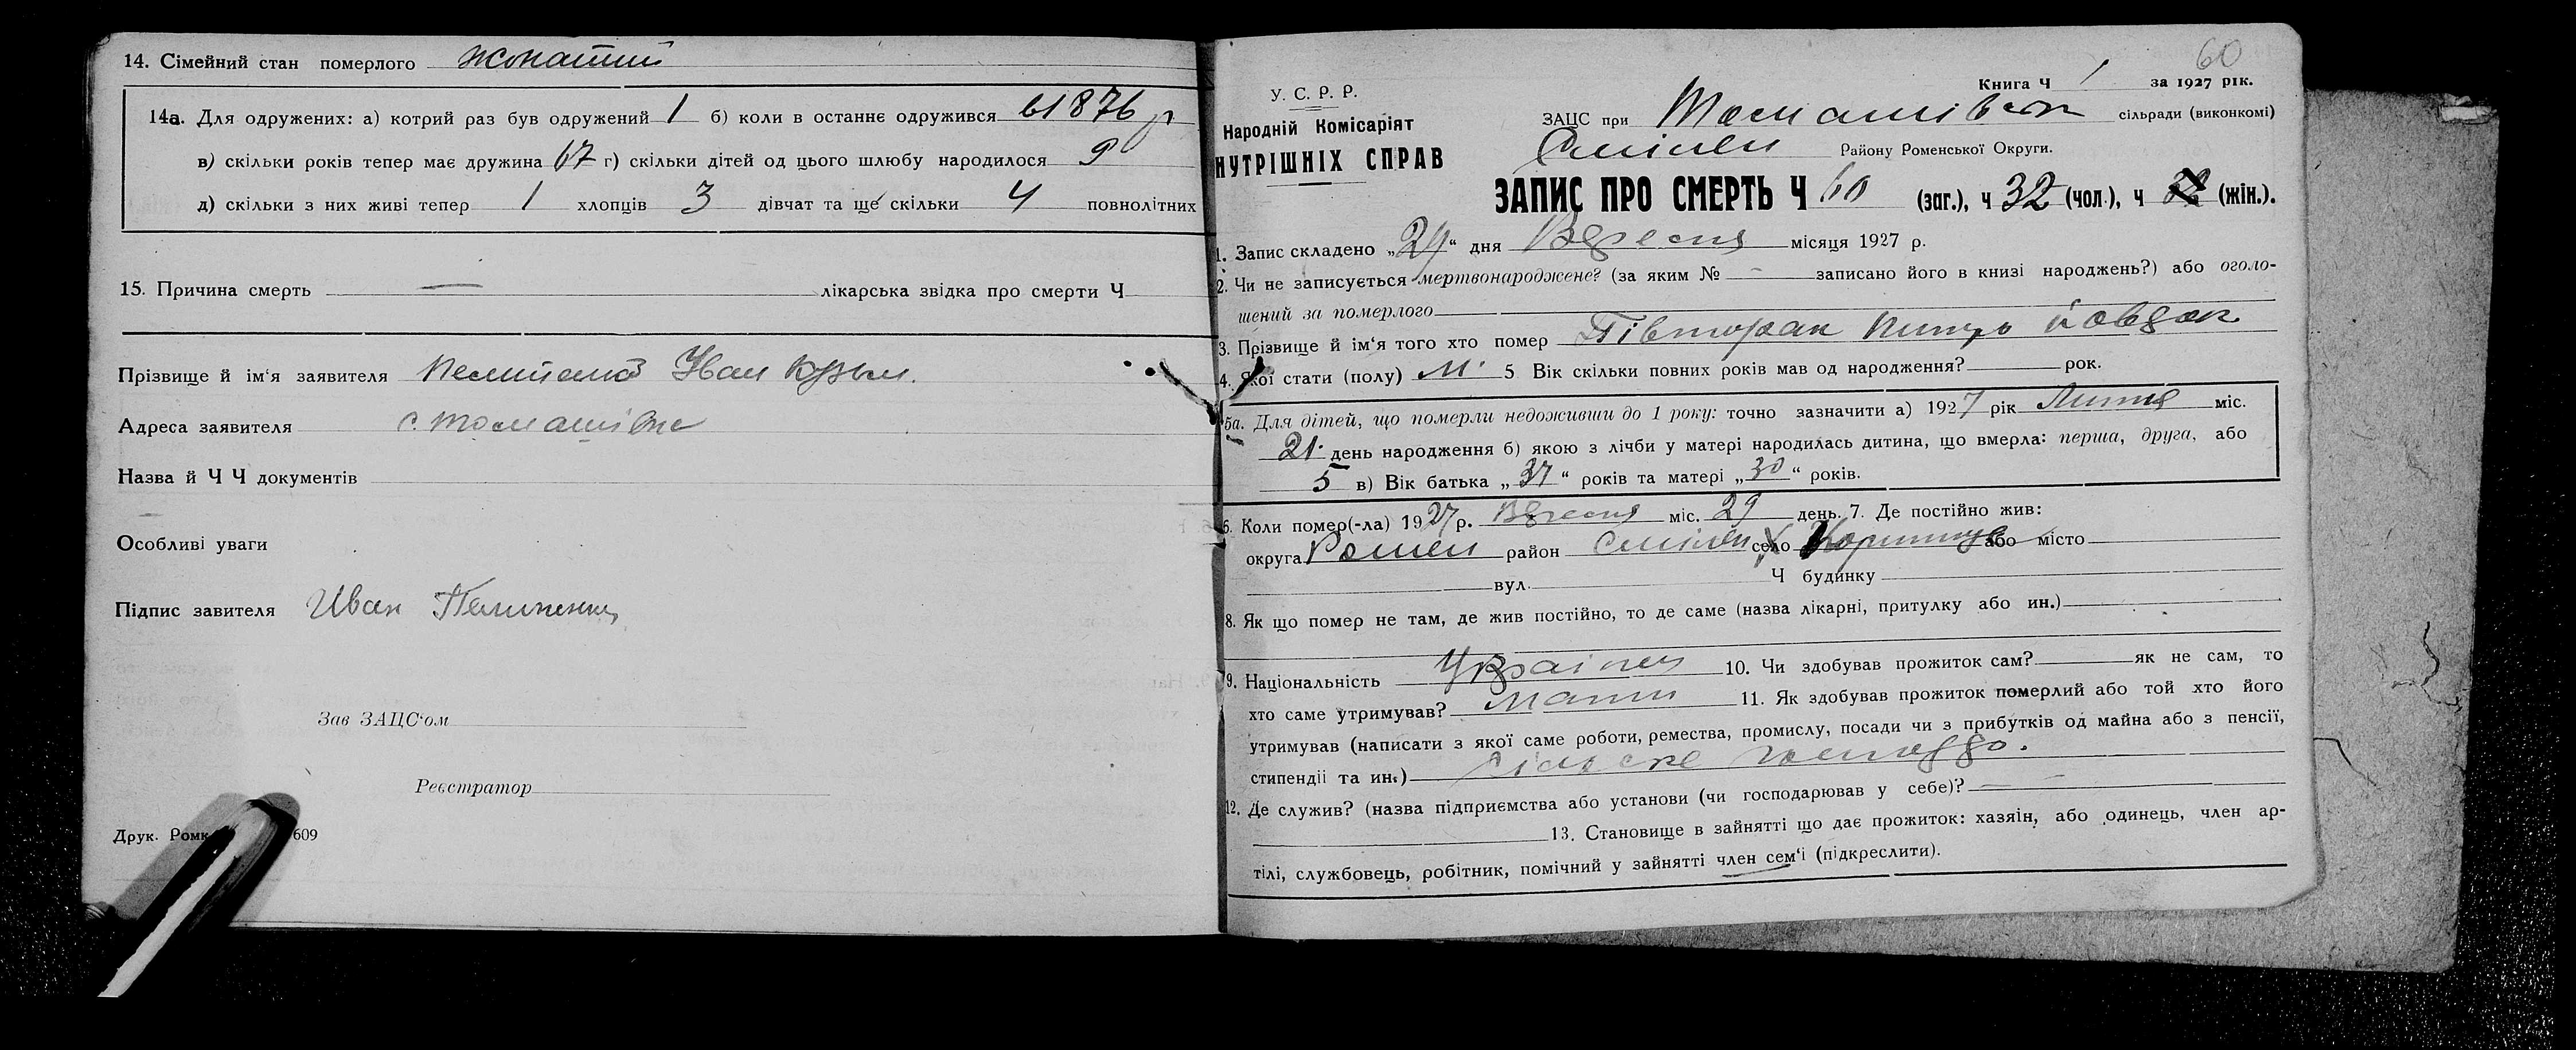 14. Сімейний стан померлого жонатий
14а. Для одружених: а) котрий раз був одружений 1 б) коли в останнє одружився в 1876 р
в) скільки років тепер має дружина 67 г) скільки дітей од цього шлюбу народилося 9
д) скільки з них живі тепер 1 хлопців 3 дівчат та ще скільки 4 повнолітних
15. Причина смерть — лікарська звідка про смерти Ч
Прізвище й ім‘я заявителя Иван
Адреса заявителя с. Томашівка
Назва й Ч Ч документів
Особливі уваги
Підпис завителя Иван
Зав ЗАЦС‘ом
Реєстратор
Друк. Ромк 609
60
Книга Ч 1 за 1927 рік.
У. С. Р. Р.
Народній Комісаріят
НУТРІШНІХ СПРАВ
ЗАЦС при Томашівск сільради (виконкомі)
Смілен Району Роменської Округи.
ЗАПИС ПРО СМЕРТЬ Ч 60 (заг.), ч 32 (чол.), ч (жін.).
1. Запис складено „29“ дня Вересня місяця 1927 р.
2. Чи не записується мертвонароджене? (за яким № — записано його в книзі народжень?) або оголо-
шений за померлого
3. Прізвище й ім‘я того хто помер Півторак
4. Якої стати (полу) М. 5 Вік скільки повних років мав од народження? рок.
5а. Для дітей, що померли недоживши до 1 року: точно зазначити а) 1927 рік Липня міс.
21. день народження б) якою з лічби у матері народилась дитина, що вмерла: перша, друга, або
5 в) Вік батька „37“ років та матері „30“ років.
6. Коли помер(-ла) 1927 р. Вересня міс. 29 день. 7. Де постійно жив:
округа Ромен район Смілен село або місто
вул. Ч будинку
8. Як що помер не там, де жив постійно, то де саме (назва лікарні, притулку або ин.)
9. Національність Українец 10. Чи здобував прожиток сам? як не сам, то
хто саме утримував? Мати 11. Як здобував прожиток померлий або той хто його
утримував (написати з якої саме роботи, ремества, промислу, посади чи з прибутків од майна або з пенсії,
стипендіі та ин.) сільске
12. Де служив? (назва підприємства або установи (чи господарював у себе)? —
13. Становище в зайнятті що дає прожиток: хазяін, або одинець, член ар-
тілі, службовець, робітник, помічний у зайнятті член сем‘і (підкреслити).